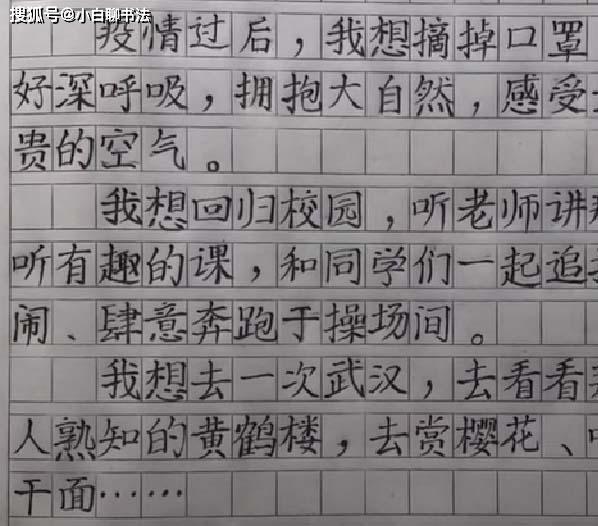 搜狐号@小白聊书法
疫情过后，我想摘掉口罩
好深呼吸，拥抱大自然，感受
贵的空气。
我想回归校园，听老师讲
听有趣的课，和同学们一起追
闹、肆意奔跑于操场间。
我想去一次武汉，去看看
人熟知的黄鹤楼，去赏樱花、
干面……